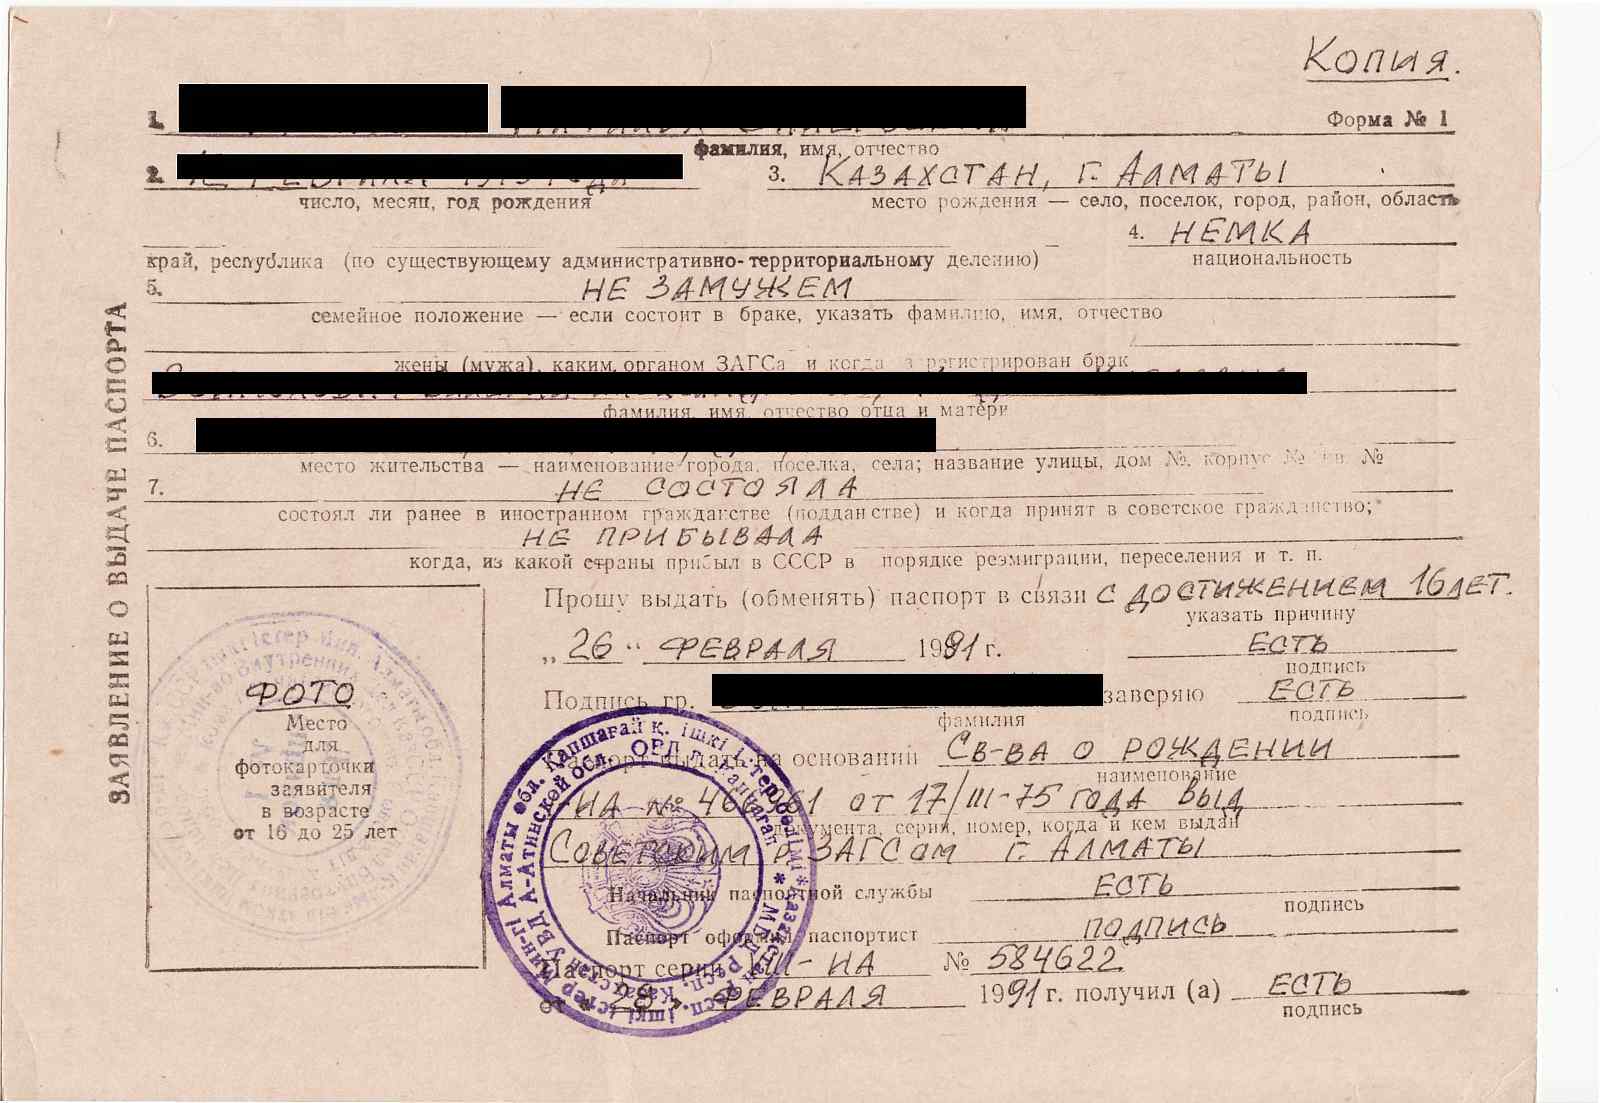 Копия.
1. Форма № 1
фамилия, имя, отчество
2. 3. КАЗАХСТАН, Г. АЛМАТЫ
число, месяц, год рождения место рождения — село, поселок, город, район, область
4. НЕМКА
край, республика (по существующему административно-территориальному делению) национальность
5. НЕ ЗАМУЖЕМ
семейное положение — если состоит в браке, указать фамилию, имя, отчество
жены (мужа), каким органом ЗАГСа и когда зарегистрирован брак
фамилия, имя, отчество отца и матери
6.
место жительства — наименование города, поселка, села; название улицы, дом №, корпус № кв. №
7. НЕ СОСТОЯЛА
состоял ли ранее в иностранном гражданстве (подданстве) и когда принят в советское гражданство;
НЕ ПРИБЫВАЛА
когда, из какой страны прибыл в СССР в порядке реэмиграции, переселения и т. п.
ЗАЯВЛЕНИЕ О ВЫДАЧЕ ПАСПОРТА
Прошу выдать (обменять) паспорт в связи С ДОСТИЖЕНИЕМ 16 ЛЕТ.
указать причину
„ 26 " ФЕВРАЛЯ 1991 г. ЕСТЬ
подпись
Подпись гр. заверяю ЕСТЬ
фамилия подпись
ФОТО
Место
для
фотокарточки
заявителя
в возрасте
от 16 до 25 лет
Паспорт выдать на основании СВ-ВА О РОЖДЕНИИ
наименование
НА № 46 61 от 17/III-75 ГОДА ВЫД
документа, серия, номер, когда и кем выдан
СОВЕТСКИМ Р ЗАГСОМ Г. АЛМАТЫ
Начальник паспортной службы ЕСТЬ
подпись
Паспорт оформил паспортист ПОДПИСЬ
Паспорт серии НА № 584622
28 ФЕВРАЛЯ 1991 г. получил (а) ЕСТЬ
подпись